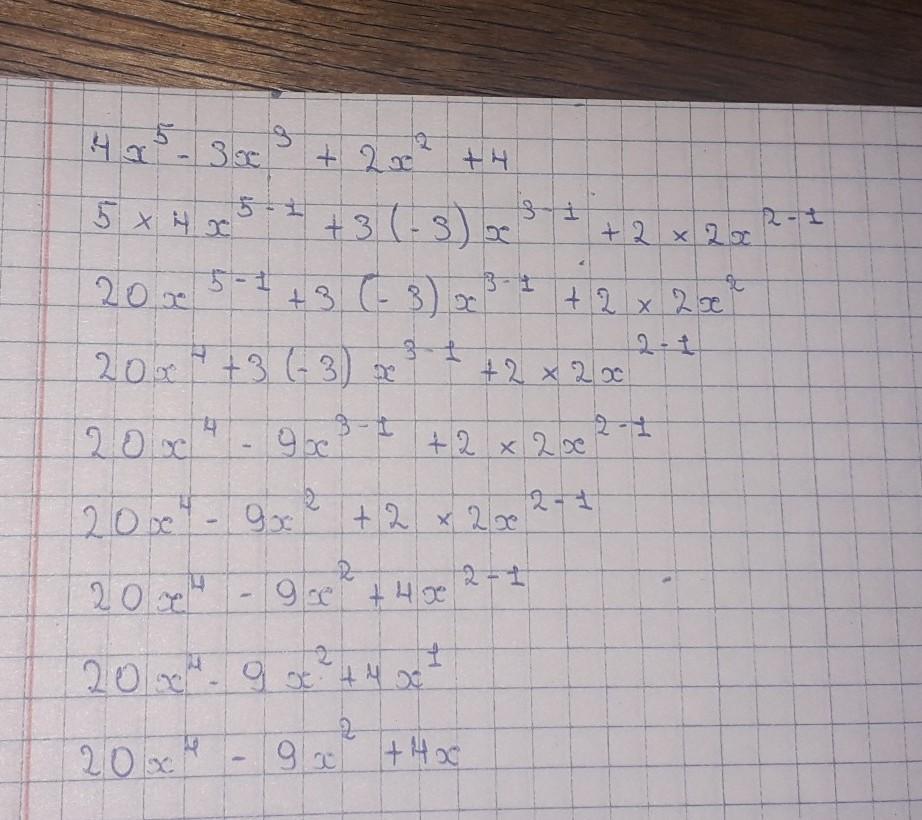 4x⁵ - 3x³ + 2x² + 4
5 × 4x⁵⁻¹ + 3(-3)x³⁻¹ + 2 × 2x²⁻¹
20x⁵⁻¹ + 3(-3)x³⁻¹ + 2 × 2x²
20x⁴ + 3(-3)x³⁻¹ + 2 × 2x²⁻¹
20x⁴ - 9x³⁻¹ + 2 × 2x²⁻¹
20x⁴ - 9x² + 2 × 2x²⁻¹
20x⁴ - 9x² + 4x²⁻¹
20x⁴ - 9x² + 4x¹
20x⁴ - 9x² + 4x